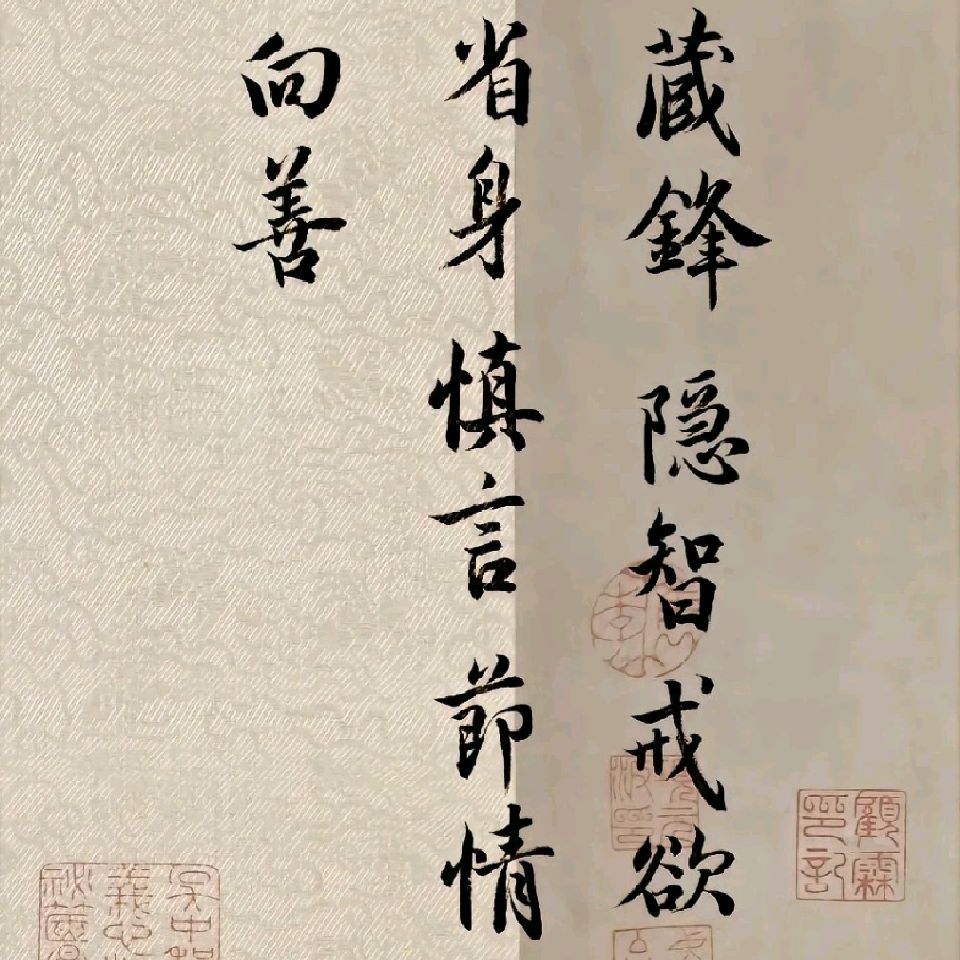 藏鋒隐智戒欲
省身慎言節情
向善
顧霖